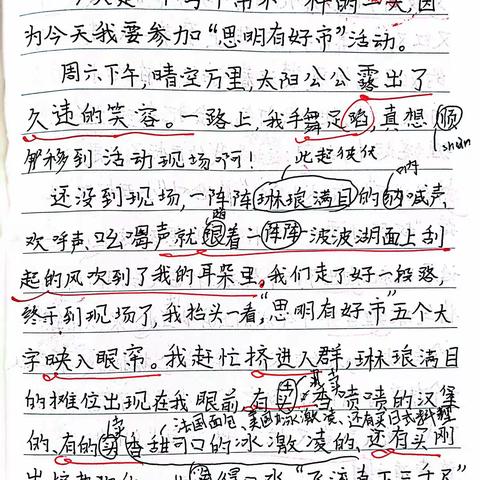 为今天我要参加“思明有好市”活动。
周六下午,晴空万里,太阳公公露出了
久违的笑容。一路上,我手舞足蹈,真想顺
shùn
够移到活动现场啊!
此起彼伏
还没到现场,一阵阵琳琅满目的呐喊声、
呐
欢呼声、吆喝声就跟着一阵阵一波波湖面上刮
起的风吹到了我的耳朵里。我们走了好一段路,
终于到现场了,我抬头一看,“思明有好市”五个大
字映入眼帘。我赶忙挤进人群,琳琅满目
的摊位出现在我眼前,有卖香喷喷的汉堡
法国面包、美国冰激凌、还有卖日式料理
的、有的卖香甜可口的冰激凌的、还有买刚